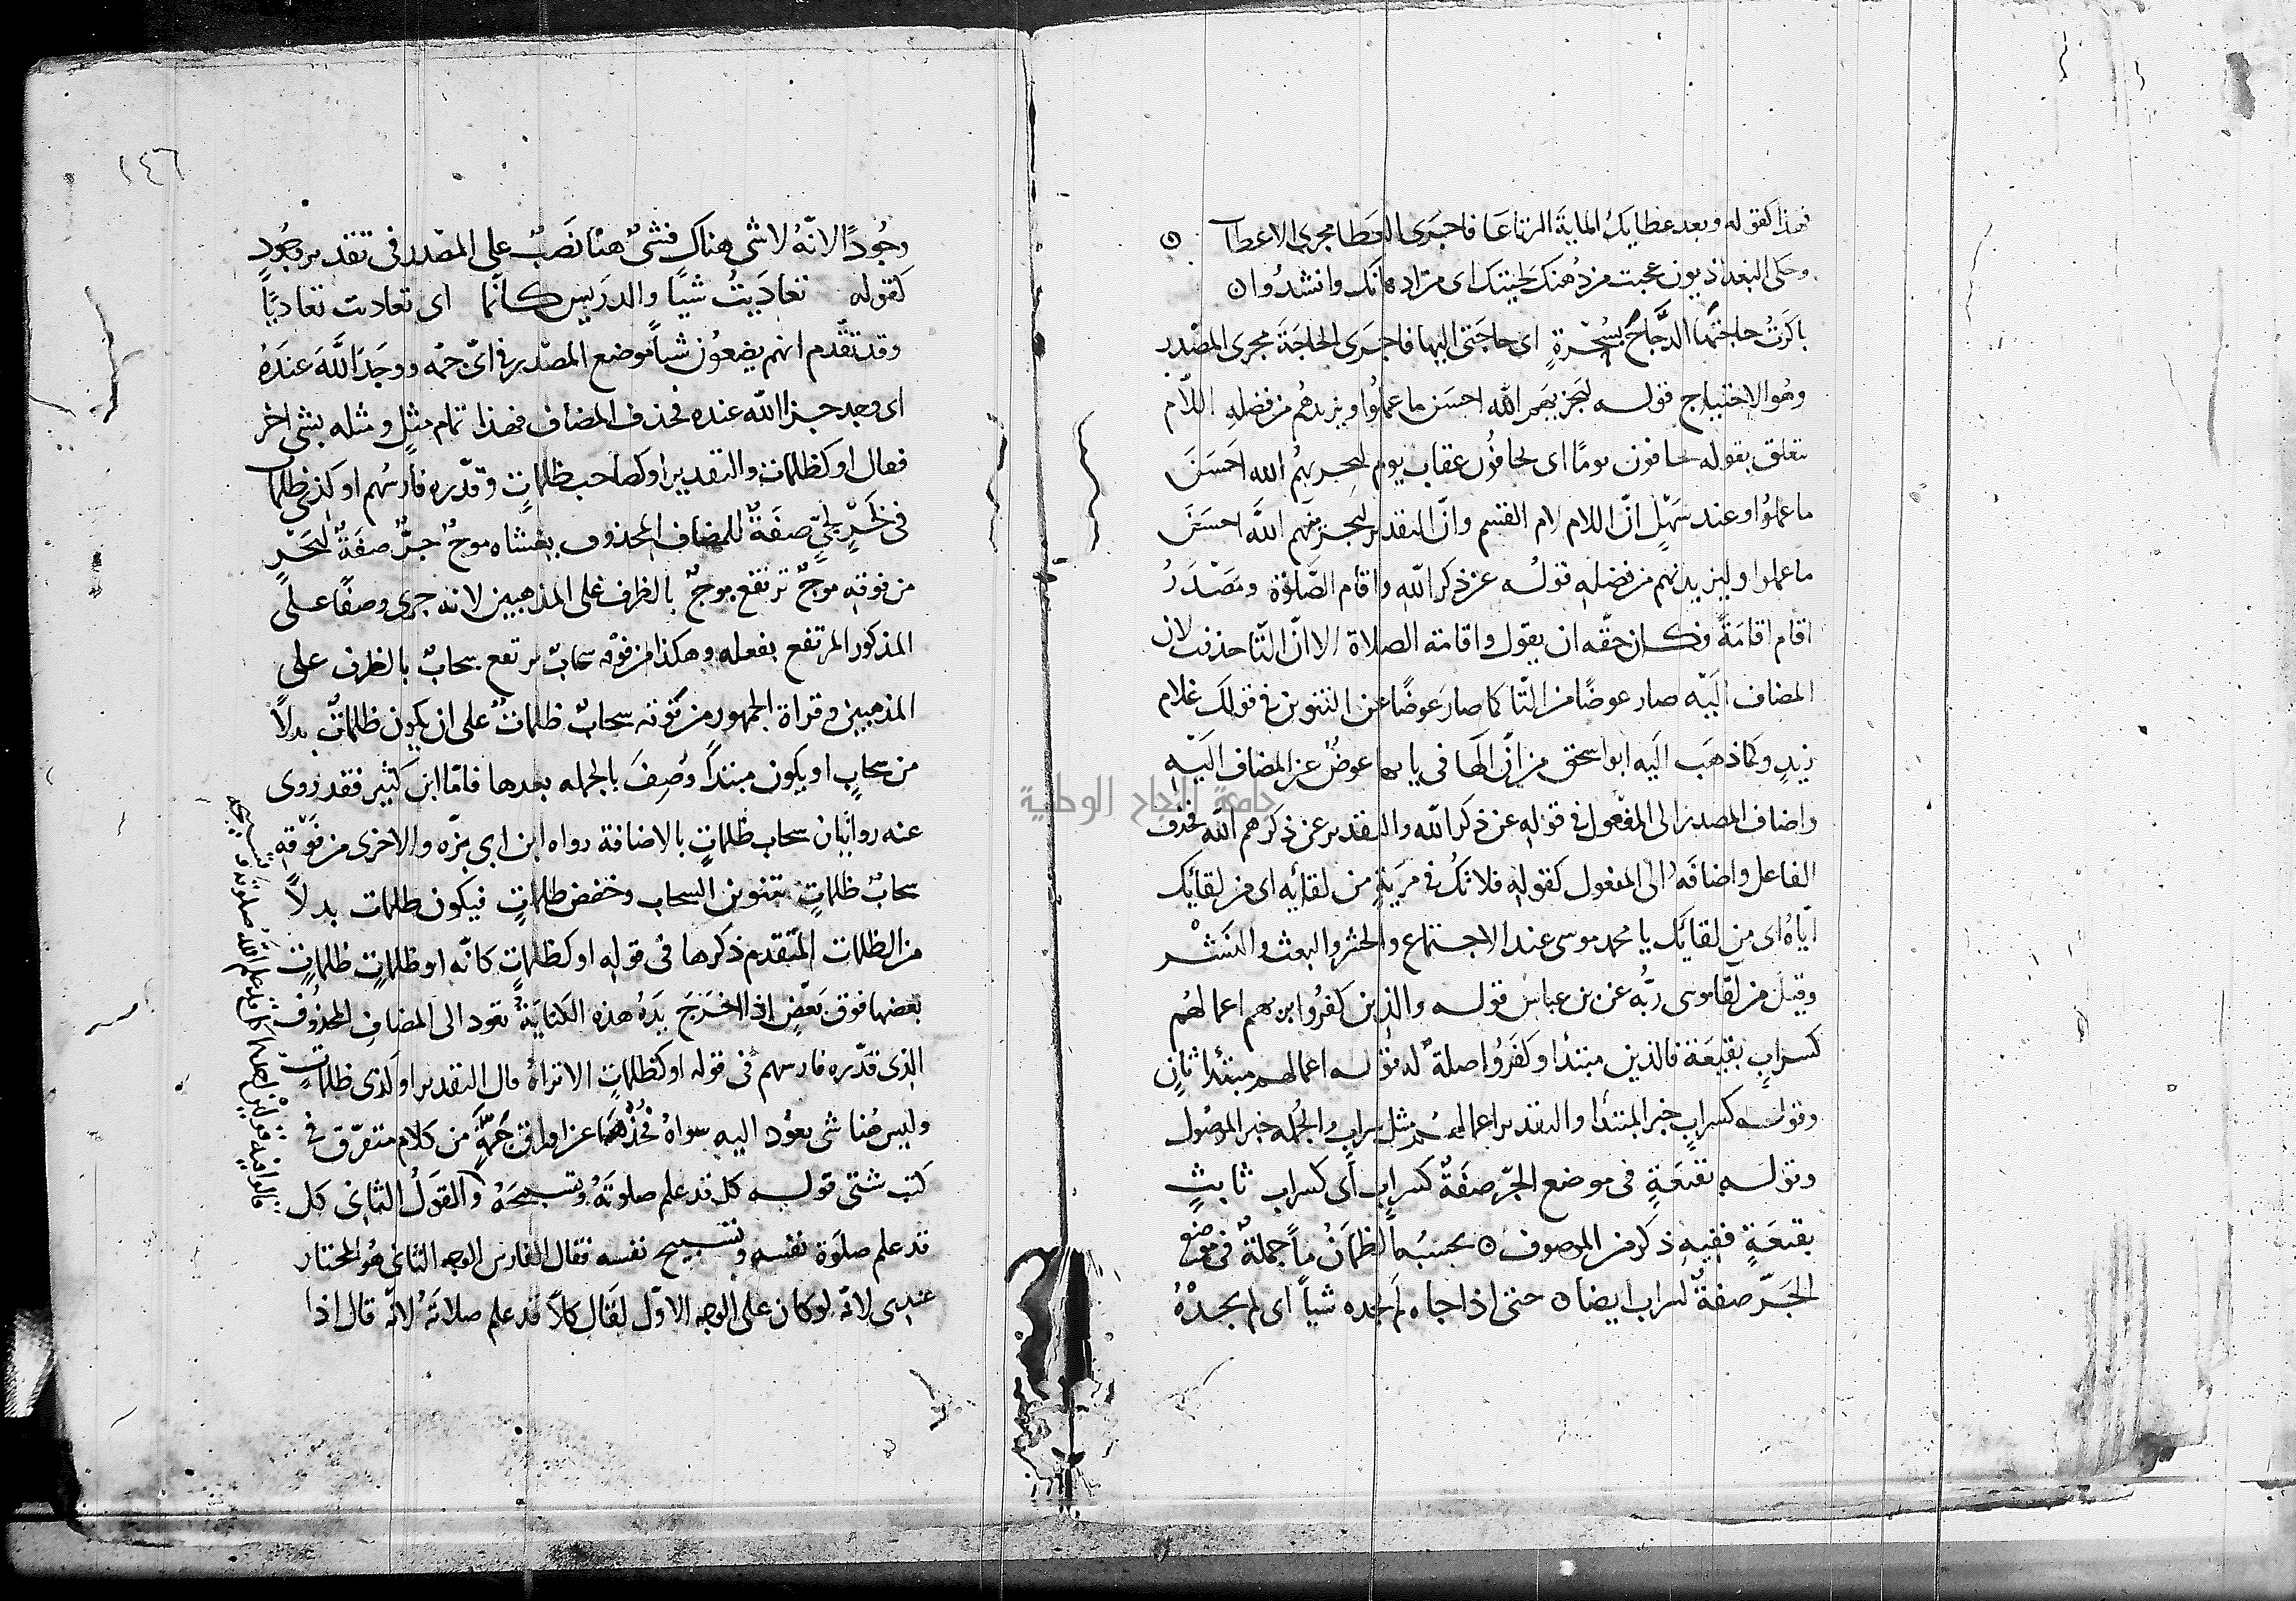 فهذا كقوله وبعد عطايك الماية الرتاعا فاجرى العطا مجرى الاعطا ه
وحكى البغداذيون عجبت من دُهنك لحيتك اى من ادهانك وانشدوا ه
باكرتُ حاجتها الدَّجاجَ بسُحْرةٍ اى حاجتى اليها فاجرى الحاجَةَ مجرى المصْدر
وهُو الاحتياج قوله ليجزيهم الله احسن ما عملوا ويزيدهم من فضله اللّام
تتعلق بقوله يخافون يومًا اى يخافُون عقاب يوم ليجزيهمُ الله احسَنَ
ما عملُوا وعند سَهْلٍ انّ اللام لام القسم وانّ التقدير ليجزينّهم اللّه احسَنَ
ما عملوا وليزيدنهم من فضله قولُه عن ذكر اللّه واقام الصّلوٰة ومَصْدَرُ
اقام اقامَةً وكان حقّه ان يقول واقامة الصلاة الا انّ التّا حذفت لان
المضاف اليْه صار عوضًا من التّا كما صار عَوضًا عن التنوين فى قولك غلام
زيدٍ وكما ذهَب اليه ابو اسحق من انّ الها فى يا ايها عوضٌ عن المضاف اليْهِ
واضاف المصدر الى المفعول فى قوله عن ذكر اللّه والتقدير عن ذكرهم اللّه فحذف
الفاعل واضافَه الى المفعول كقوله فلا تكُ فى مريةٍ من لقائه اى من لقائك
ايّاهُ اى من لقائك يا محمد موسى عند الاجتماع والحشر والبعث والنشْر
وقيل من لقا موسى ربُّه عن بن عباس قوله والذين كفرُوا بربهم اعمالهُم
كسرابٍ بقيعَة فالذين مبتدأ وكفَرُوا صلةٌ له قوله اعمالهم مبتدأ ثانٍ
وقوله كسرابٍ خبر المبتدأ والتقدير اعمالهم مثل سراب والجُمله خبر الموصُول
وقوله بقيعَةٍ فى موضع الجرّ صفَةٌ كسرابٍ اى كسراب ثابتٍ
بقيعَةٍ ففيه ذكر من الموصوف ه يحسبُه الظمانُ ماً جملةٌ فى موضع
الجَرّ صفةٌ لسراب ايضا ه حتى اذا جاه لم يجده شياً اى لم يجدْهُ
١٤٦
وجُودًا لانّهُ لا شى هناك فشىٌ هنا نَصبٌ على المصْدر فى تقدير وجُودٍ
كقوله تعادَيتُ شيًا والدريس كانّما اى تعاديت تعاديًا
وقد تقّدم انهم يضعُون شياً موضع المصدر فى اىّ جمْه ووجَدَ اللَّه عندَهُ
اى وجد جزا اللّه عنده فحذف المضاف فهذا تمام مثلٍ ومثله بشى اخر
فقال او كظلمات والتقدير او كصاحب ظلماتٍ وقدّره فارسُهم او كذى ظلمات
فى بَحْرٍ لجّىٍ صفَةٌ للمضاف المحذوف يغشاه موجٌ جرٌّ صفَةٌ لبَحْرٍ
من فوقه موجٌ ترتفع موجٌ بالظرف على المذهبين لانه جرى وصفًا على
المذكور المرتفع بفعله وهكذا من فوْقه سحابٌ يرتفع سحابٌ بالظرف على
المذهبين وقراة الجمهور من فوقه سحابٌ ظلماتٌ على ان يكون ظلماتٌ بدلاً
من سحابٍ او يكون مبتدأً وُصِفَ بالجمله بعدها فامّا ابن كثير فقد روى
عنه روايتان سحاب ظُلماتٍ بالاضافة رواه ابن ابى بزّه والاخرى من فَوْقه
سحابٌ ظلماتٍ بتنوين السحاب وخفض ظلماتٍ فيكون ظلمات بدلاً
من الظلمات المتقدم ذكرها فى قوله او كظلماتٍ كانّه او ظلماتٍ ظلماتٍ
بعضها فوق بَعضٍ اذا اخرَجَ يَدَهُ هذه الكنايَةُ تعود الى المضاف المحذوف
الذى قدّره فارسهم فى قوله او كظلماتٍ الا تراهُ قال التقدير او كذى ظلماتٍ
وليس هُنا شى يعُود اليه سواهُ فخُذْها عن اوراق جَمَّةٍ من كلام متفرّق فى
كتب شتى قوله كل قد علم صلوتَهُ وتسبيحَهُ والقولُ الثانى كل
قد علم صلَوة نفسه وتسبيح نفسه فقال الفارس الوجه الثانى هُو المختار
عندى لانّه لو كان على الوجه الاوّل لقال كلاً قد علم صلاتَهُ لانّه قال اذا